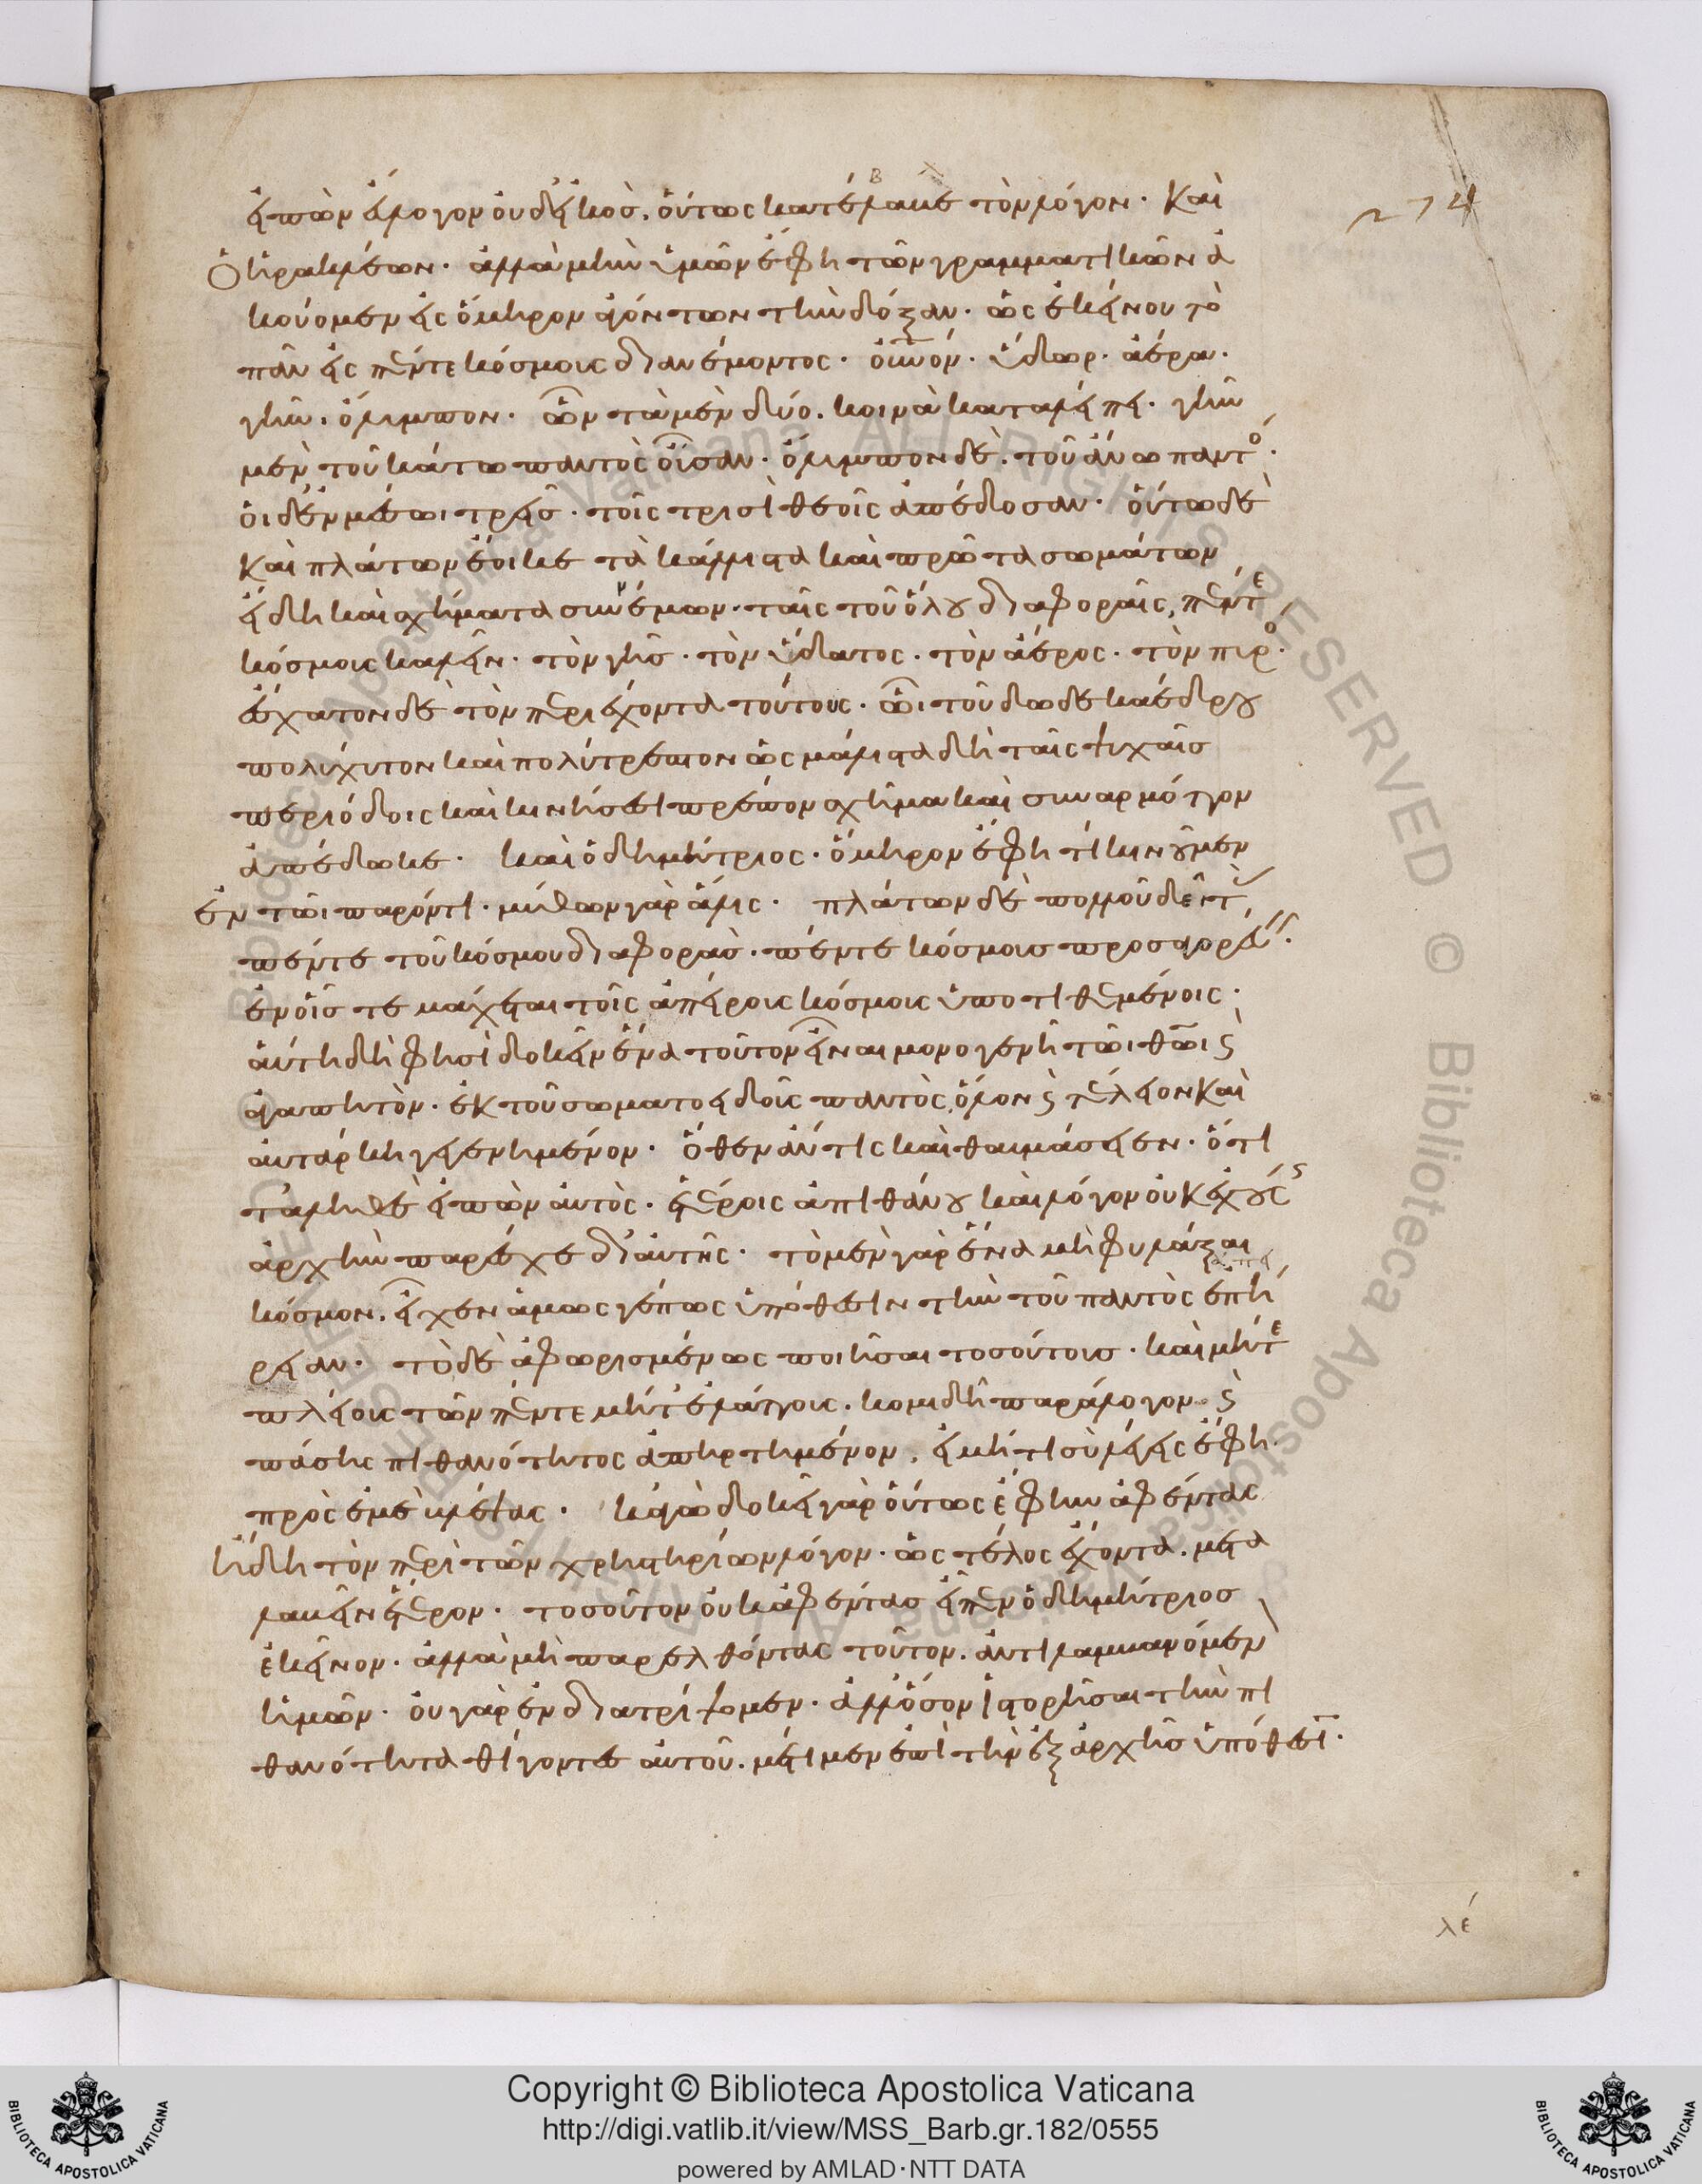 εἰπὼν ἄλογον οὐδ' εἰκὸς. οὕτως κατέβαλε τὸν λόγον. Καὶ
ὁ ἡρακλέων. ἀλλὰ μὴν ὑμῶν ἔφη τῶν γραμματικῶν ἀ
κούομεν εἰς ὅμηρον ἀγόντων τὴν δόξαν. ὡς ἐκείνου τὸ
πᾶν εἰς πέντε κόσμοις διανέμοντος. οὐνὸν. ὕδωρ. ἀέρα.
γῆν. ὄλυμπον. ὧν τὰ μὲν δύο. κοινὰ καταλείπει. γῆν
μὲν τοῦ κάτω παντὸς οὖσαν. ὄλυμπον δὲ. τοῦ ἄνω παντὸ.
οἱ δ' ἐν μέσωι τρεῖς. τοῖς τρισὶ θεοῖς ἀπέδοσαν. οὕτω δὲ
καὶ πλάτων ἔοικε τὰ κάλλιστα καὶ πρῶτα σωμάτων
εἴδη καὶ σχήματα συννέμων. ταῖς τοῦ ὅλου διαφοραῖς, πέντε
κόσμοις καλεῖν. τὸν γῆς. τὸν ὕδατος. τὸν ἀέρος. τὸν πυρὸ.
ἔσχατον δὲ τὸν περιέχοντα τούτους. ὧι τοῦ δωδεκαέδρου
πολύχυτον καὶ πολύτρεπτον ὡς μάλιστα δὴ ταῖς ψυχαῖς
περιόδοις καὶ κινήσεσι πρέπον σχῆμα καὶ συναρμόττον
ἀπέδωκε. καὶ ὁ δημήτριος. ὅμηρον ἔφη τί κινοῦμεν
ἐν τῶι παρόντι. μύθων γὰρ ἅλις. πλάτων δὲ πολλοῦ δεῖ τ
πέντε τοῦ κόσμου διαφορὰς. πέντε κόσμοις προσαγορεύ.
ἐν οἷς τε μάχεται τοῖς ἀπείροις κόσμοις ὑποτιθεμένοις.
αὐτὴ δὴ φησὶ δοκεῖν ἕνα τοῦτον εἶναι μονογενῆ τῶι θῶι ϛ
ἀγαπητὸν. ἐκ τοῦ σωματοειδοῖς παντὸς, ὅλον ϛ τέλειον καὶ
αὐτάρκη γεγενημένον. ὅθεν ἄν τις καὶ θαυμάσειεν. ὅτι
τἀληθὲ εἰπὼν αὐτὸς. ἑτέροις ἀπιθάνου καὶ λόγον οὐκ ἐχούσ
ἀρχὴν παρέσχε δι' αὐτῆς. τὸ μὲν γὰρ ἕνα μὴ φυλάξαι
κόσμον. εἶχεν ἀμῶς γέ πως ὑπόθεσιν τὴν τοῦ παντὸς ἐπή
ρειαν. τὸ δὲ ἀφωρισμένως ποιῆσαι τοσούτοις. καὶ μήτε
πλείοις τῶν πέντε μήτ' ἐλάττοις. κομιδῆ παράλογον. ϛ
πάσης πιθανότητος ἀπηρτημένον. εἰ μή τι σὺ λέγεις ἔφη.
πρὸς ἐμὲ βλέψας. κἀγὼ δοκεῖ γὰρ οὕτως ἔφην ἀφέντας
ἤδη τὸν περὶ τῶν χρηστηρίων λόγον. ὡς τέλος ἔχοντα. μετα
λαβεῖν ἕτερον. τοσοῦτον οὐκ ἀφέντας εἶπεν ὁ δημήτριος
ἐκεῖνον. ἀλλὰ μὴ παρελθόντας τοῦτον. ἀντιλαμβανόμεν
ἡμῶν. οὐ γὰρ ἐνδιατρίψομεν. ἀλλ' ὅσον ἱστορῆσαι τὴν πι
θανότητα θίγοντες αὐτοῦ. μέτιμεν ἐπὶ τὴν ἐξ ἀρχῆς ὑπόθεσι.
λέ
Copyright © Biblioteca Apostolica Vaticana
http://digi.vatlib.it/view/MSS_Barb.gr.182/0555
powered by AMLAD·NTT DATA